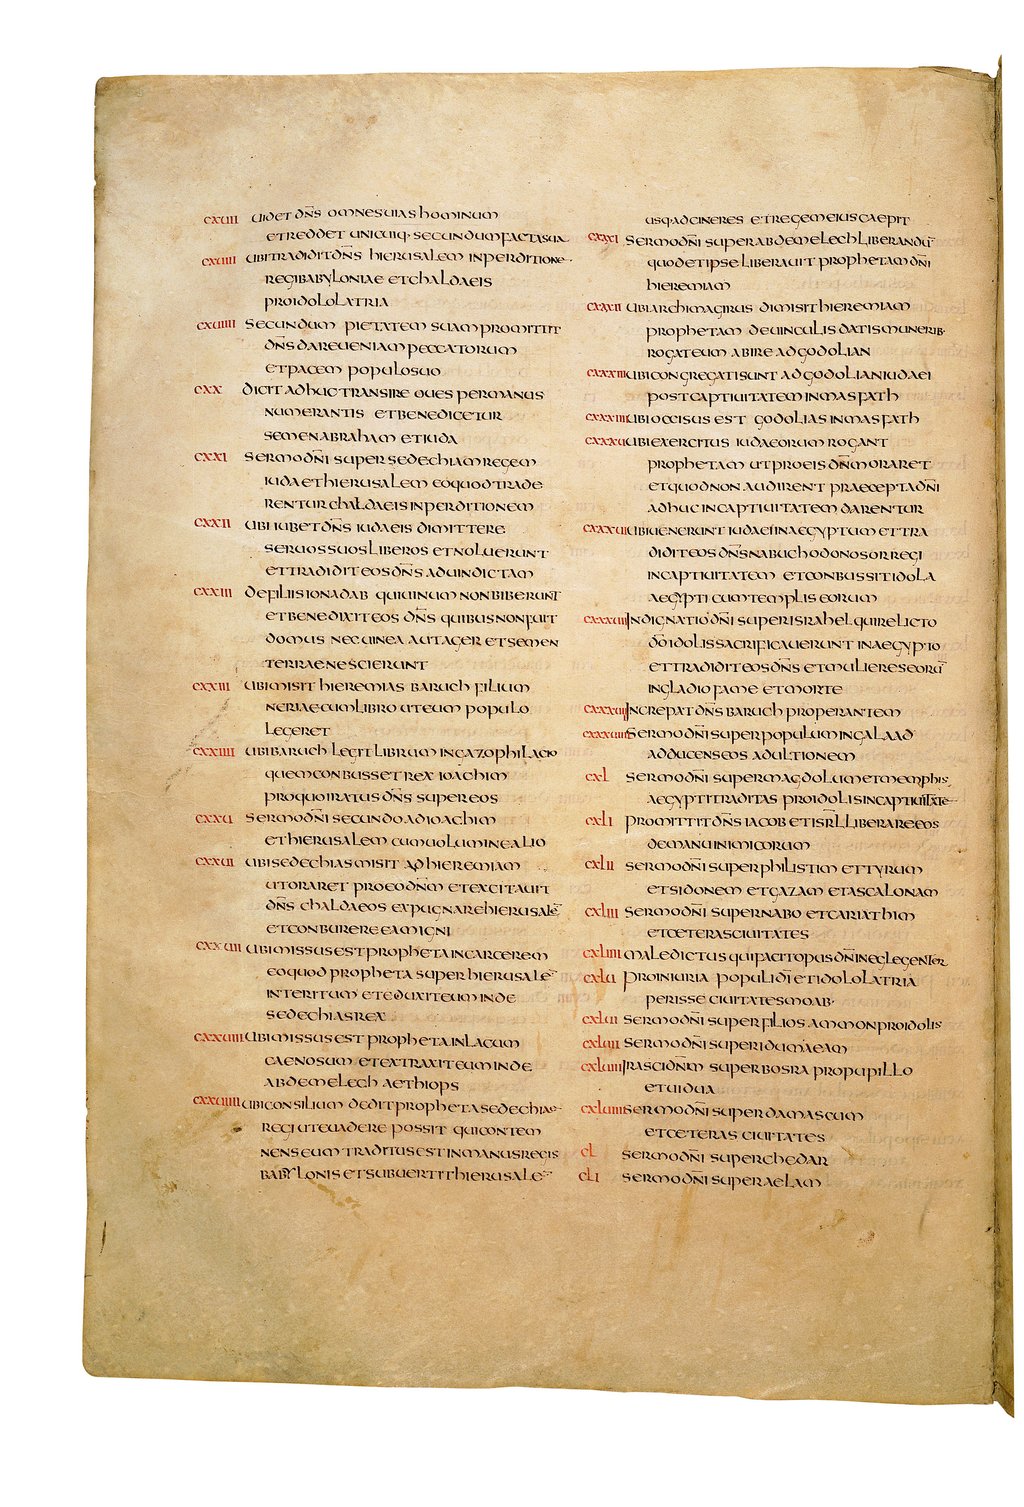 CXUII UIDET DN̄S OMNES UIAS HOMINUM
ET REDDET UNICUIQ· SECUNDUM FACTA SUA
CXUIII UBI TRADIDIT DN̄S HIERUSALEM IN PERDITIONE
REGI BABYLONIAE ET CHALDAEIS
PRO IDOLOLATRIA
CXUIIII SECUNDUM PIETATEM SUAM PROMITTIT
DN̄S DARE UENIAM PECCATORUM
ET PACEM POPULO SUO
CXX DICIT ADHUC TRANSIRE OUES PER MANUS
NUMERANTIS ET BENEDICETUR
SEMEN ABRAHAM ET IUDA
CXXI SERMO DN̄I SUPER SEDECHIAM REGEM
IUDA ET HIERUSALEM EO QUOD TRADE
RENTUR CHALDAEIS IN PERDITIONEM
CXXII UBI IUBET DN̄S IUDAEIS DIMITTERE
SERUOS SUOS LIBEROS ET NOLUERUNT
ET TRADIDIT EOS DN̄S AD UINDICTAM
CXXIII DE FILIIS IONADAB QUI UINUM NON BIBERUNT
ET BENEDIXIT EOS DN̄S QUIBUS NON FUIT
DOMUS NEC UINEA AUT AGER ET SEMEN
TERRAE NESCIERUNT
CXXIII UBI MISIT HIEREMIAS BARUCH FILIUM
NERIAE CUM LIBRO UT EUM POPULO
LEGERET
CXXIIII UBI BARUCH LEGIT LIBRUM IN GAZOPHILACIO
QUEM CONBUSSET REX IOACHIM
PRO QUO IRATUS DN̄S SUPER EOS
CXXU SERMO DN̄I SECUNDO AD IOACHIM
ET HIERUSALEM CUM UOLUMINE ALIO
CXXUI UBI SEDECHIAS MISIT AD HIEREMIAM
UT ORARET PRO EO DN̄M ET EXCITAUIT
DN̄S CHALDAEOS EXPUGNARE HIERUSALĒ
ET CONBURERE EAM IGNI
CXXUII UBI MISSUS EST PROPHETA IN CARCEREM
EO QUOD PROPHETA SUPER HIERUSALĒ
INTERITUM ET EDUXIT EUM INDE
SEDECHIAS REX
CXXUIII UBI MISSUS EST PROPHETA IN LACUM
CAENOSUM ET EXTRAXIT EUM INDE
ABDEMELECH AETHIOPS
CXXUIIII UBI CONSILIUM DEDIT PROPHETA SEDECHIAE
REGI UT EUADERE POSSIT QUI CONTEM
NENS EUM TRADITUS EST IN MANUS REGIS
BABYLONIS ET SUBUERTIT HIERUSALĒ
USQ· AD CINERES ET REGEM EIUS CAEPIT
CXXXI SERMO DN̄I SUPER ABDEMELECH LIBERANDŪ
QUOD ET IPSE LIBERAUIT PROPHETAM DN̄I
HIEREMIAM
CXXXII UBI ARCHIMAGIRUS DIMISIT HIEREMIAM
PROPHETAM DE UINCULIS DATIS MUNERIB·
ROGAT EUM ABIRE AD GODOLIAN
CXXXIII UBI CONGREGATI SUNT AD GODOLIAN IUDAEI
POST CAPTIUITATEM IN MASFATH
CXXXIIII UBI OCCISUS EST GODOLIAS IN MASFATH
CXXXU UBI EXERCITUS IUDAEORUM ROGANT
PROPHETAM UT PRO EIS DN̄M ORARET
ET QUOD NON AUDIRENT PRAECEPTA DN̄I
ADHUC IN CAPTIUITATEM DARENTUR
CXXXUI UBI UENERUNT IUDAEI IN AEGYPTUM ET TRA
DIDIT EOS DN̄S NABUCHODONOSOR REGI
IN CAPTIUITATEM ET CONBUSSIT IDOLA
AEGYPTI CUM TEMPLIS EORUM
CXXXUII INDIGNATIO DN̄I SUPER ISRAHEL QUI RELICTO
DŌ IDOLIS SACRIFICAUERUNT IN AEGYPTO
ET TRADIDIT EOS DN̄S ET MULIERES EORŪ
IN GLADIO FAME ET MORTE
CXXXUIII INCREPAT DN̄S BARUCH PROPERANTEM
CXXXUIIII SERMO DN̄I SUPER POPULUM IN GALAAD
ADDUCENS EOS AD ULTIONEM
CXL SERMO DN̄I SUPER MAGDOLUM ET MEMPHIS
AEGYPTI TRADITAS PRO IDOLIS IN CAPTIUITATE
CXLI PROMITTIT DN̄S IACOB ET ISR̄L LIBERARE EOS
DE MANU INIMICORUM
CXLII SERMO DN̄I SUPER PHILISTIM ET TYRUM
ET SIDONEM ET GAZAM ET ASCALONAM
CXLIII SERMO DN̄I SUPER NABO ET CARIATHIM
ET CETERAS CIUITATES
CXLIIII MALEDICTUS QUI FACIT OPUS DN̄I NEGLEGENTER
CXLU PRO INIURIA POPULI DĪ ET IDOLOLATRIA
PERISSE CIUITATES MOAB·
CXLUI SERMO DN̄I SUPER FILIOS AMMON PRO IDOLIS
CXLUII SERMO DN̄I SUPER IDUMAEAM
CXLUIII IRASCI DN̄M SUPER BOSRA PRO PUPILLO
ET UIDUA
CXLUIIII SERMO DN̄I SUPER DAMASCUM
ET CETERAS CIUITATES
CL SERMO DN̄I SUPER CHEDAR
CLI SERMO DN̄I SUPER AELAM